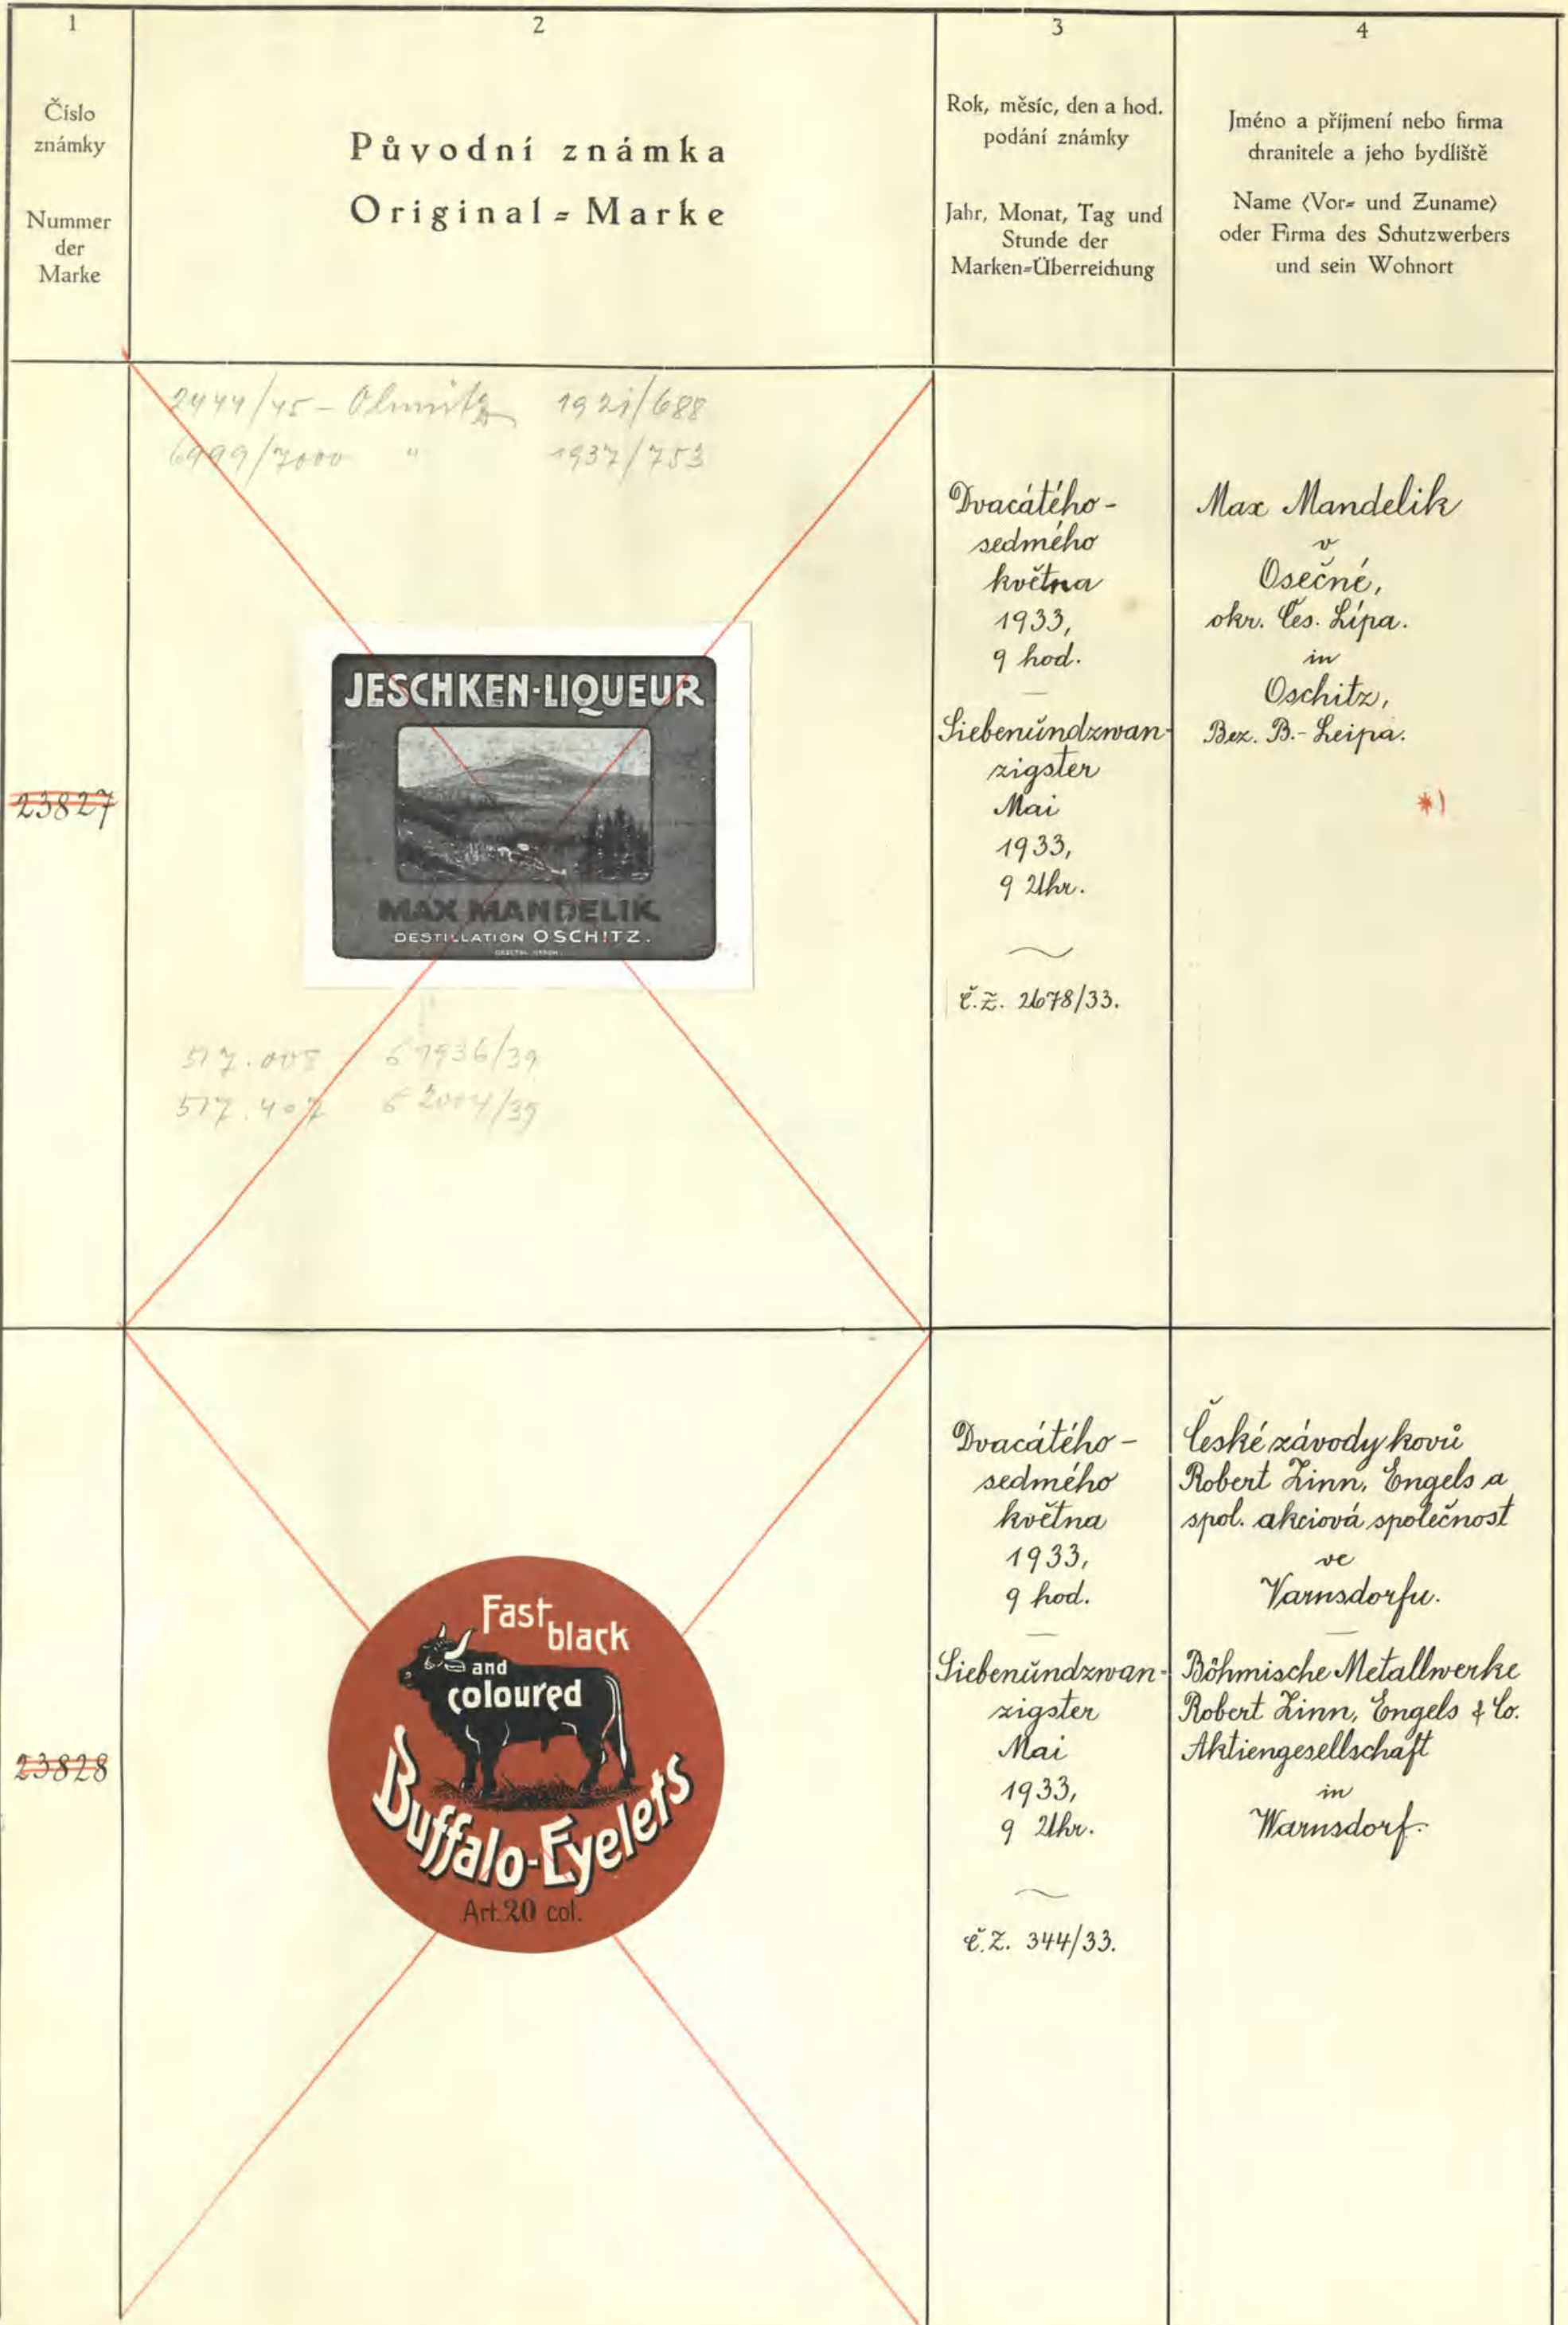 1
Číslo
známky
Nummer
der
Marke
2
Původní známka
Original=Marke
3
Rok, měsíc, den a hod.
podání známky
Jahr, Monat, Tag und
Stunde der
Marken=Überreichung
4
Jméno a příjmení nebo firma
chranitele a jeho bydliště
Name (Vor= und Zuname)
oder Firma des Schutzwerbers
und sein Wohnort
23827
2444/45 - Olmütz 1921/688
6999/7000 " 1937/753
JESCHKEN-LIQUEUR
MAX MANDELIK
DESTILLATION OSCHITZ.
517.407
Dvacátého-
sedmého
května
1933,
9 hod.
Siebenundzwan-
zigster
Mai
1933,
9 Uhr.
č.ž. 2678/33.
Max Mandelik
v
Osečné,
okr. Čes. Lípa.
in
Oschitz,
Bez. B.-Leipa.
*)
23828
Fast
black
and
coloured
Buffalo-Eyelets
Art. 20 col.
Dvacátého-
sedmého
května
1933,
9 hod.
Siebenundzwan-
zigster
Mai
1933,
9 Uhr.
č.ž. 344/33.
České závody kovů
Robert Zinn, Engels a
spol. akciová společnost
ve
Varnsdorfu.
Böhmische Metallwerke
Robert Zinn, Engels & Co.
Aktiengesellschaft
in
Warnsdorf.